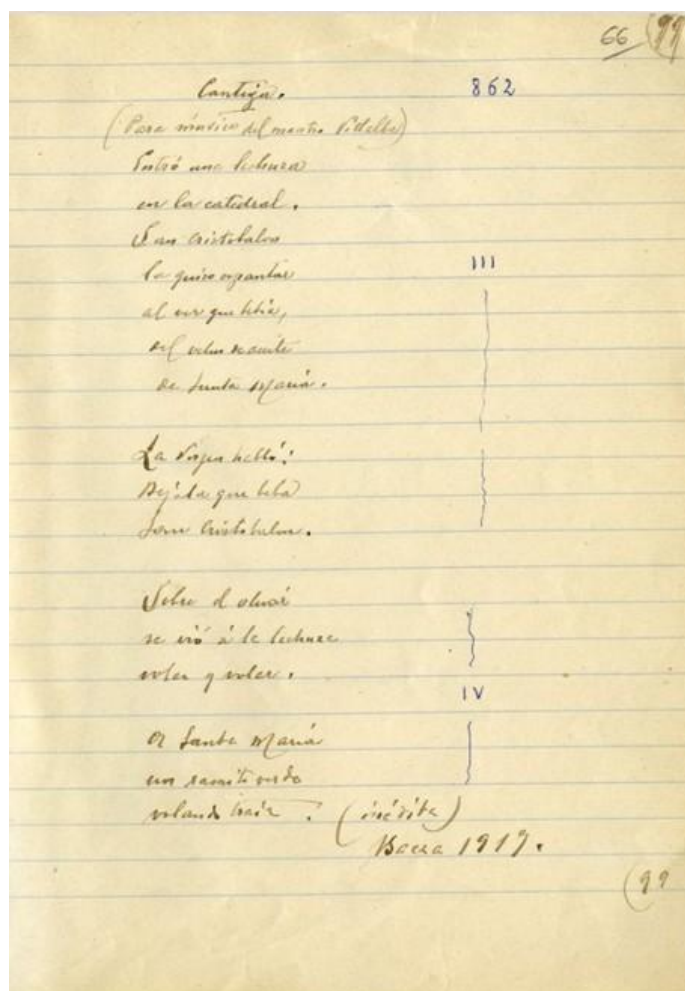 66 (99
Cantiga. 862
(Para música del maestro
Entró una lechuza
en la catedral.
San Cristobalon
la quiso espantar III
al ver que bebía,
del velon de aceite
de Santa María.
La Virgen habló:
Dejála que beba
San Cristobalon.
Sobre el olivar
se vió á la lechuza
volar y volar.
IV
A Santa María
un ramito verde
volando traía. (inédita)
Baeza 1919.
(99